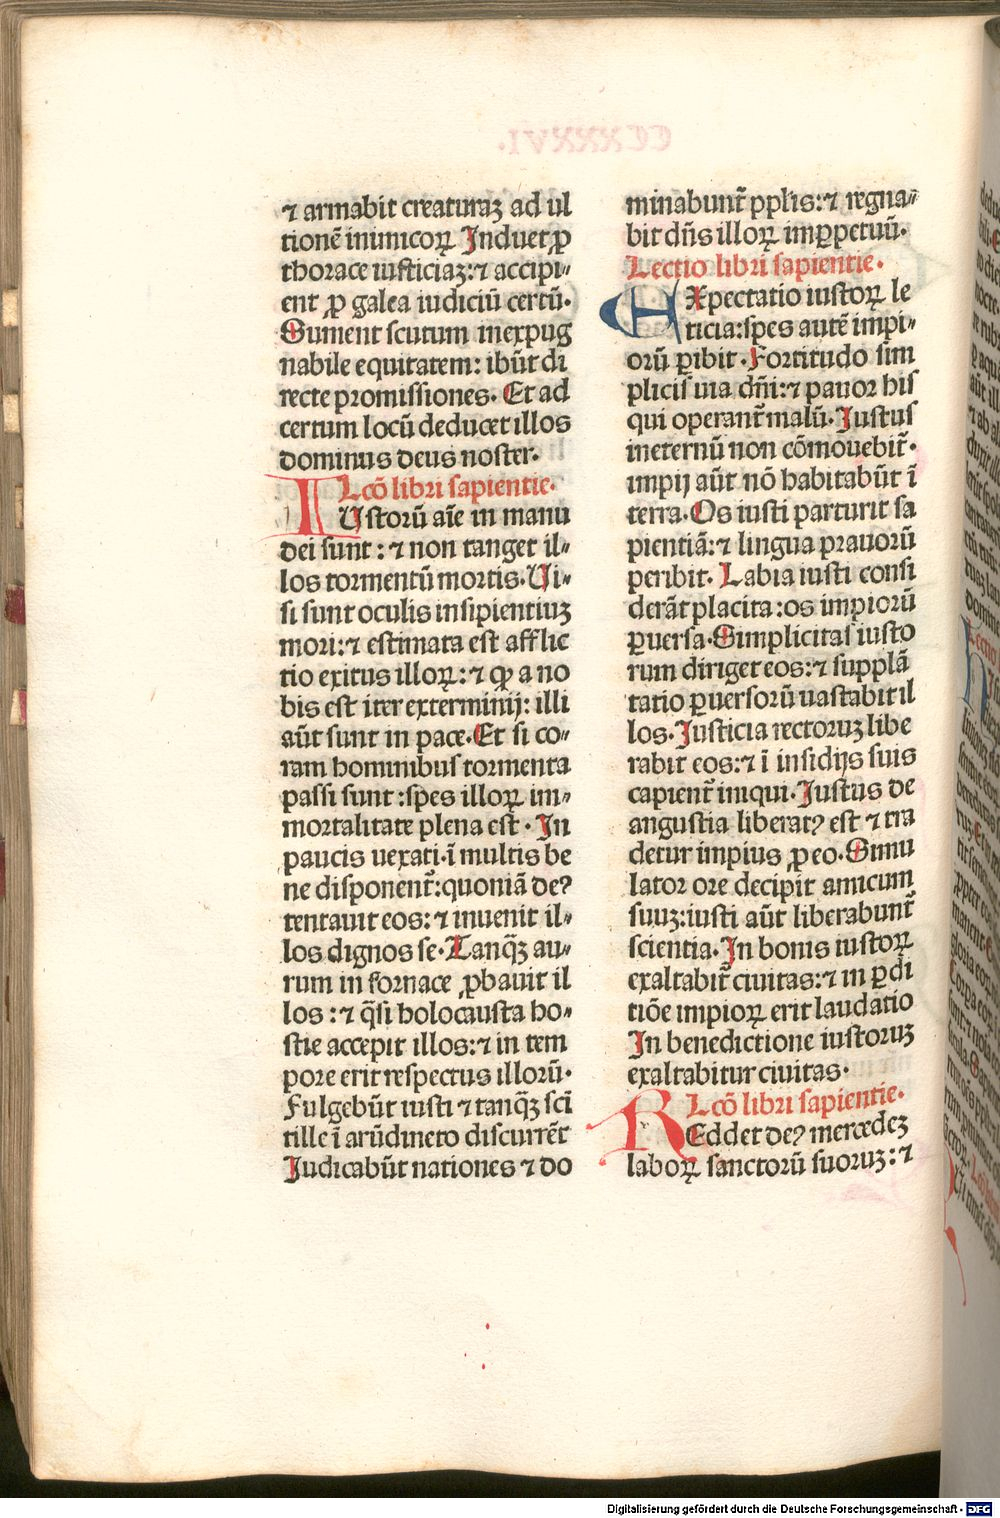 ⁊ armabit creaturaꝫ ad ul
tionē inimicoꝝ Induet ꝓ
thorace iusticiaꝫ: ⁊ accipi⸗
ent ꝓ galea iudiciū certū.
Sument scutum inexpug
nabile equitatem: ibūt di
recte promissiones. Et ad
certum locū deducet illos
dominus deus noster.
Lcō libri sapientie.
IUstorū aīe in manu
dei sunt: ⁊ non tanget il⸗
los tormentū mortis. Ui⸗
si sunt oculis insipientiuꝫ
mori: ⁊ estimata est afflic
tio exitus illoꝝ: ⁊ qꝓ a no
bis est iter exterminij: illi
aūt sunt in pace. Et si co⸗
ram hominibus tormenta
passi sunt: spes illoꝝ im⸗
mortalitate plena est. In
paucis uexati. ī multis be
ne disponent̄: quoniā deꝰ
tentauit eos: ⁊ inuenit il⸗
los dignos se. Tanqꝫ̄ au⸗
rum in fornace ꝓbauit il
los: ⁊ q̄si holocausta ho⸗
stie accepit illos: ⁊ in tem
pore erit respectus illorū.
Fulgebūt iusti ⁊ tanqꝫ̄ sci
tille ī arūdineto discurrēt
Iudicabūt nationes ⁊ do
minabunt̄ ppl̄is: ⁊ regna⸗
bit dn̄s illoꝝ imꝑpetuū.
Lectio libri sapientie.
EXpectatio iustoꝝ le
ticia: spes autē impi⸗
orū ꝑibit. Fortitudo sim
plicis uia dn̄i: ⁊ pauor his
qui operant̄ malū. Iustus
ineternū non cōmouebit̄.
impij aūt nō habitabūt ī
terra. Os iusti parturit sa
pientiā: ⁊ lingua prauorū
peribit. Labia iusti consi
derāt placita: os impiorū
ꝑuersa. Simplicitas iusto
rum diriget eos: ⁊ supplā
tatio ꝑuersorū uastabit il
los. Iusticia rectoruꝫ libe
rabit eos: ⁊ ī insidijs suis
capient̄ iniqui. Iustus de
angustia liberatꝰ est ⁊ tra
detur impius ꝓ eo. Simu
lator ore decipit amicum
suuꝫ: iusti aūt liberabunt̄
scientia. In bonis iustoꝝ
exaltabit̄ ciuitas: ⁊ in ꝑdi
tiōe impioꝝ erit laudatio
In benedictione iustoruꝫ
exaltabitur ciuitas.
Lcō libri sapientie.
REddet deꝰ mercedeꝫ
laboꝝ sanctorū suoruꝫ: ⁊
Digitalisierung gefördert durch die Deutsche Forschungsgemeinschaft - DFG